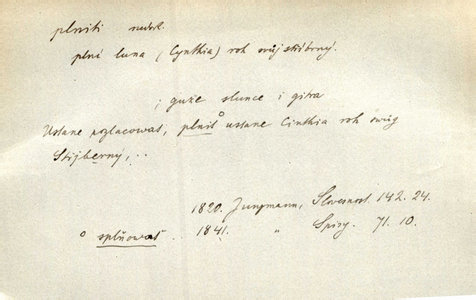 plniti nedok.
plní luna (Cynthia) roh svůj stříbrný.
; guže slunce i gitra
Ustane pozlacowat, plnit o ustane Cinthia roh swůg
Stijberný, ..
1820. Jungmann, Slovesnost. 142. 24.
o splňowat. 1841. " Spisy. 71. 10.